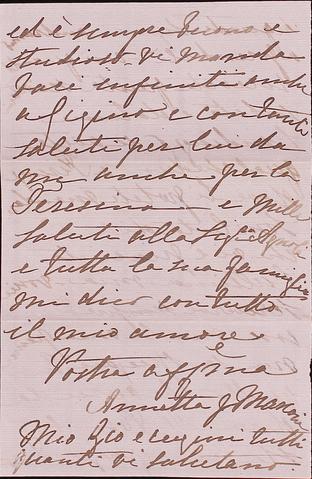 ed è sempre buono e
studioso vi manda
baci infiniti anche
a Gigino e con tanti
saluti per lui da
me anche per la
Teresina e mille
saluti alla Sig.ª
e tutta la sua famiglia
mi dico con tutto
il mio amore
Vostra aff.ma
Annetta
Mio Zio e cugini tutti
quanti vi salutano.